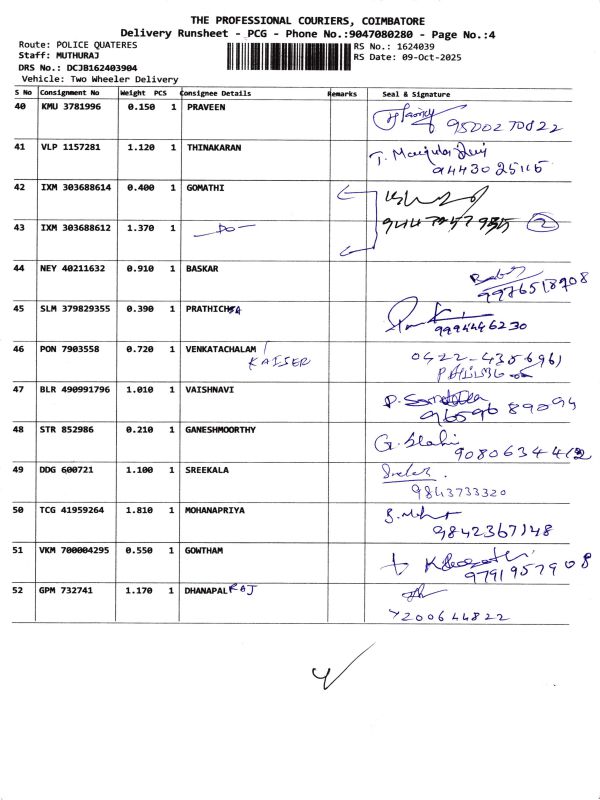 THE PROFESSIONAL COURIERS, COIMBATORE
Delivery Runsheet - PCG - Phone No.:9047080280 - Page No.:4
Route: POLICE QUATERES
Staff: MUTHURAJ
DRS No.: DCJB162403904
Vehicle: Two Wheeler Delivery
RS No.: 1624039
RS Date: 09-Oct-2025
S No Consignment No Weight PCS Consignee Details Remarks Seal & Signature
40 KMU 3781996 0.150 1 PRAVEEN
9500270022
41 VLP 1157281 1.120 1 THINAKARAN
T.
42 IXM 303688614 0.400 1 GOMATHI
43 IXM 303688612 1.370 1 —Do— 2
44 NEY 40211632 0.910 1 BASKAR
9976518708
45 SLM 379829355 0.390 1 PRATHICHSA
9994446230
46 PON 7903558 0.720 1 VENKATACHALAM
KAISER
0422-4356961
47 BLR 490991796 1.010 1 VAISHNAVI
P.
9659689094
48 STR 852986 0.210 1 GANESHMOORTHY
G.
49 DDG 600721 1.100 1 SREEKALA
9843733320
50 TCG 41959264 1.810 1 MOHANAPRIYA
9842367148
51 VKM 700004295 0.550 1 GOWTHAM
9791957908
52 GPM 732741 1.170 1 DHANAPAL RAJ
7200644822